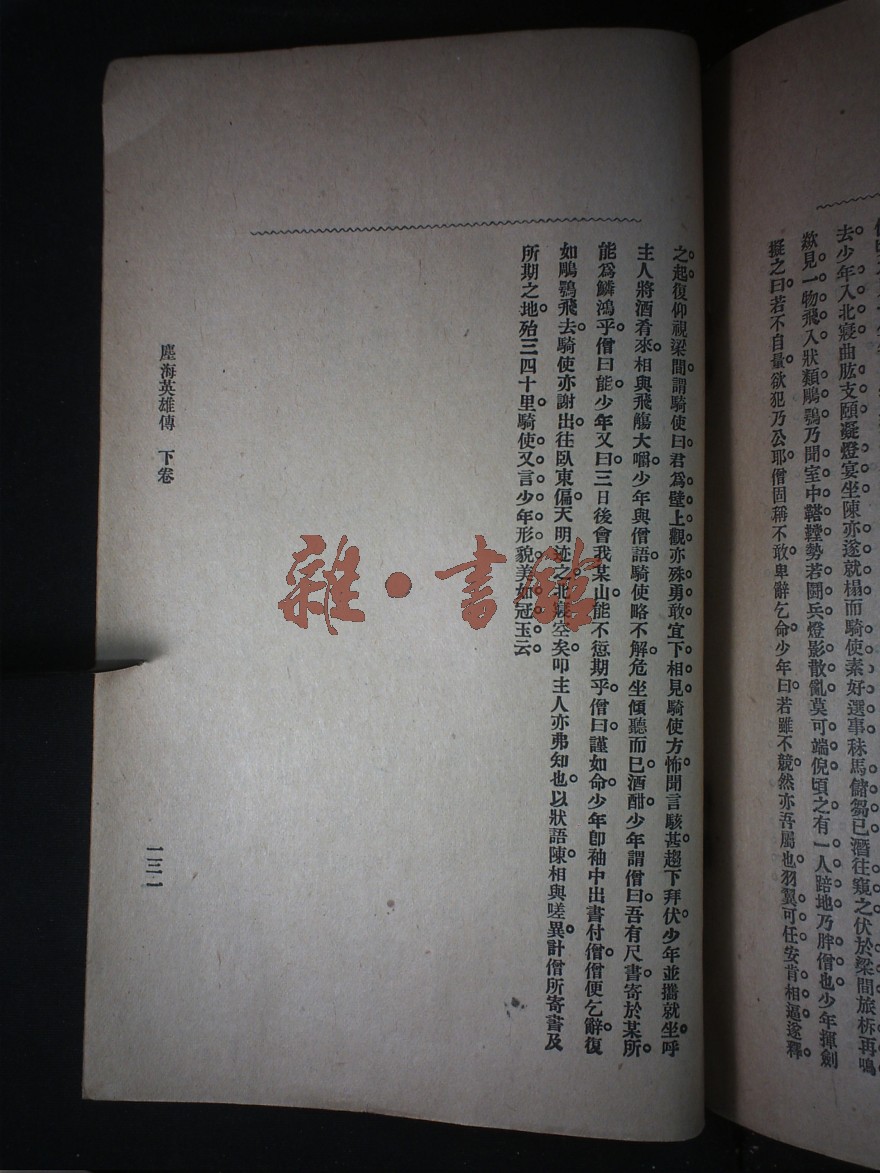 去少年入北寢曲肱支頤凝燈宴坐陳亦遂就榻而騎使素好選事秣馬儲芻已潛往窺之伏於梁間旅柝再鳴
歘見一物飛入狀類鵰鶚乃聞室中鞳鞺勢若鬬兵燈影散亂莫可端倪頃之有一人踣地乃胖僧也少年揮劍
擬之曰若不自量欲犯乃公耶僧固稱不敢卑辭乞命少年曰若雖不競然亦吾屬也羽翼可任安肯相逼遂釋
之起復仰視梁間謂騎使曰君爲壁上觀亦殊勇敢宜下相見騎使方怖聞言駭甚趨下拜伏少年並攜就坐呼
主人將酒肴來相與飛觴大嚼少年與僧語騎使略不解危坐傾聽而已酒酣少年謂僧曰吾有尺書寄於某所
能爲鱗鴻乎僧曰能少年又曰三日後會我某山能不愆期乎僧曰謹如命少年卽袖中出書付僧僧便乞辭復
如鵰鶚飛去騎使亦謝出往臥東偏天明迹之北寢空矣叩主人亦弗知也以狀語陳相與嗟異計僧所寄書及
所期之地殆三四十里騎使又言少年形貌美如冠玉云
塵海英雄傳　下卷
一三一
雜·書館